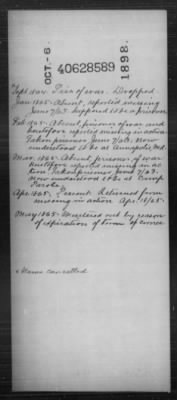 OCT.-6.
40628589
1898.
Sept 1864. Pris of war. Dropped.
Jan 1865. Absent, reported missing
June 7/64. Supposed to be a prisoner
Feb. 1865. Absent, prisoner of war and
heretofore reported missing in action
Taken prisoner June 7/64. Now
understood to be at Annapolis, Md.
Mar. 1865. Absent prisoner of war
heretofore reported missing in ac
tion. Taken prisoner June 7/64.
Now understood to be at Camp
Parole
Apr. 1865. Present. Returned from
missing in action Apr. 18/65.
May 1865. Mustered out by reason
of expiration of term of service
Name cancelled